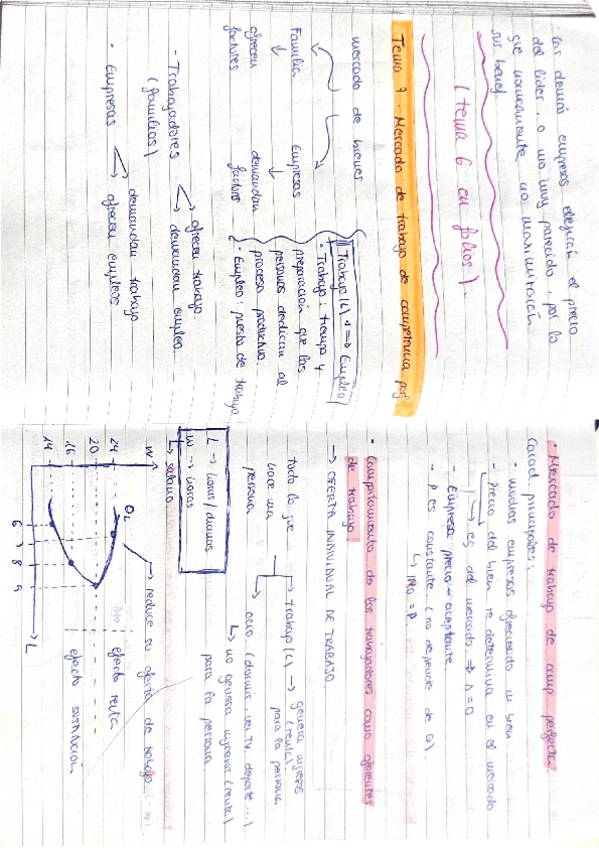 · Las demás empresas elegirán el precio
del líder, o uno muy parecido, por lo
que normalmente no maximizarán
sus benef
(tema 6 en folios).
Tema 7. Mercado de trabajo de competencia perf
mercado de bienes
Familia Empresas
ofrecen demandan
factores factores
Trabajo (L) ≠ => Empleo
· Trabajo: tiempo y
preparación que las
personas dedican al
proceso productivo.
· Empleo: puesto de trabajo
- Trabajadores
(familias)
ofrecen trabajo.
demandan empleo
· Empresas
demandan trabajo
ofrecen empleos
· Mercado de trabajo de comp perfecta
Caract. principales:
· muchas empresas ofreciendo un bien
· Precio del bien se determina en el mercado
es del mercado => = 0
· Empresa precio-aceptante
· P es constante (no depende de Q).
↳ IMa = P
· Comportamiento de los trabajadores como oferentes
de trabajo
→ OFERTA INDIVIDUAL DE TRABAJO
todo lo que
hace una
persona
trabajo (L) → genera ingresos
(renta)
para la persona.
ocio (dormir, ver TV, deporte ...)
↳ no genera ingresos (renta)
para la persona.
L → horas/
W →
↳ salario
W
OL
→ reduce su oferta de trabajo
24
20
16
14
6
7
8
9
L
efecto renta
efecto sustitución